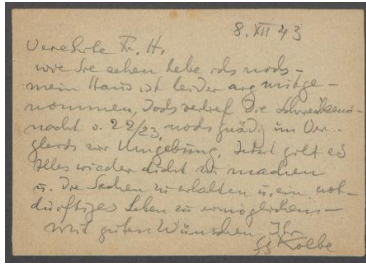 8. XII 43
Verehrte Fr. H.,
wie Sie sehen lebe ich noch -
mein Haus ist leider arg mitge-
nommen, doch verlief die Schreckens-
nacht v. 22/23 noch gnädig im Ver-
gleich zur Umgebung. Jetzt gilt es
Alles wieder dicht zu machen
u. die Sachen zu erhalten u. ein not-
dürftiges Leben zu ermöglichen -
Mit guten Wünschen Ihr
GKolbe